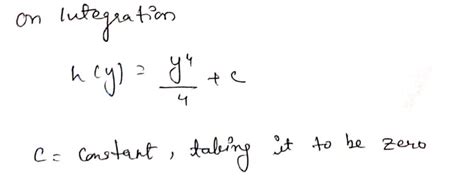 on Integration
h(y) = y⁴/4 + c
C = constant, taking it to be zero